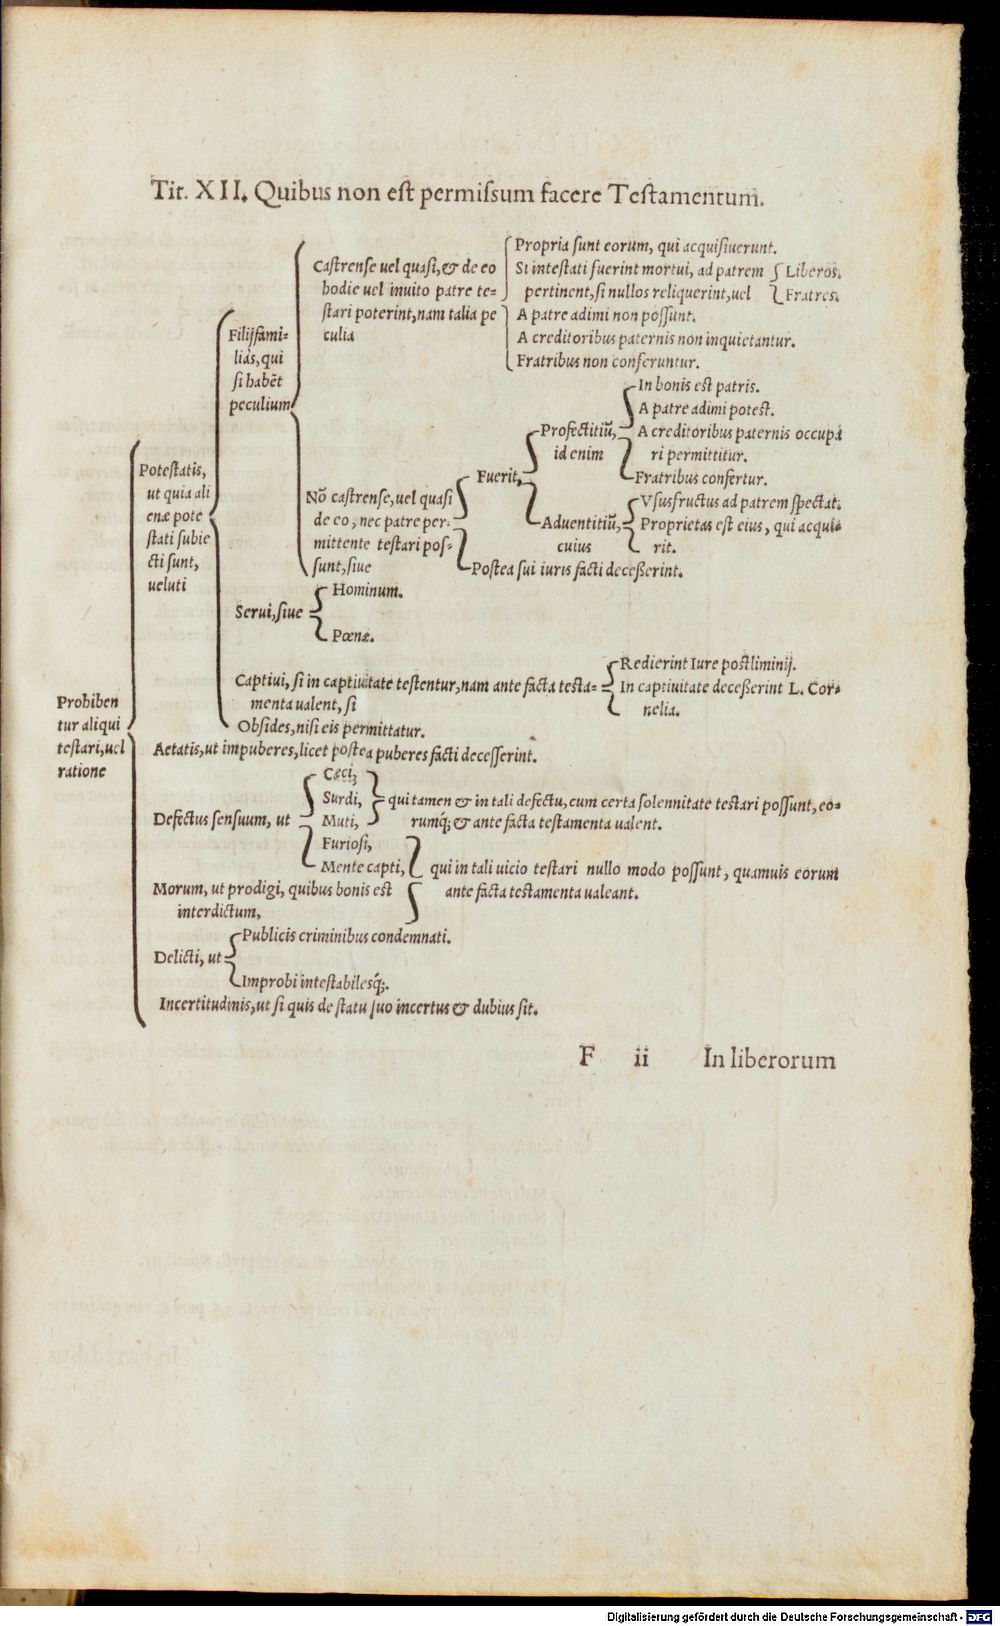 Tit. XII. Quibus non est permissum facere Testamentum.
Prohiben
tur aliqui
testari, uel
ratione
Potestatis,
ut quia ali
enæ pote
stati subie
cti sunt,
ueluti
Filijfami-
liàs, qui
si habēt
peculium
Castrense uel quasi, & de eo
hodie uel inuito patre te-
stari poterint, nam talia pe
culia
Propria sunt eorum, qui acquisiuerunt.
Si intestati fuerint mortui, ad patrem
pertinent, si nullos reliquerint, uel
Liberos.
Fratres.
A patre adimi non possunt.
A creditoribus paternis non inquietantur.
Fratribus non conferuntur.
Nō castrense, uel quasi
de eo, nec patre per-
mittente testari pos-
sunt, siue
Fuerit,
Profectitiū,
id enim
In bonis est patris.
A patre adimi potest.
A creditoribus paternis occupa
ri permittitur.
Fratribus confertur.
Aduentitiū,
cuius
Vsusfructus ad patrem spectat.
Proprietas est eius, qui acqui-
rit.
Postea sui iuris facti decesserint.
Serui, siue
Hominum.
Pœnæ.
Captiui, si in captiuitate testentur, nam ante facta testa-
menta ualent, si
Redierint Iure postliminij.
In captiuitate decesserint L. Cor-
nelia.
Obsides, nisi eis permittatur.
Aetatis, ut impuberes, licet postea puberes facti decesserint.
Defectus sensuum, ut
Cæci,
Surdi,
Muti,
qui tamen & in tali defectu, cum certa solennitate testari possunt, eo-
rumq́; & ante facta testamenta ualent.
Furiosi,
Mente capti,
Morum, ut prodigi, quibus bonis est
interdictum,
qui in tali uicio testari nullo modo possunt, quamuis eorum
ante facta testamenta ualeant.
Delicti, ut
Publicis criminibus condemnati.
Improbi intestabilesq́;.
Incertitudinis, ut si quis de statu suo incertus & dubius sit.
F ii In liberorum
Digitalisierung gefördert durch die Deutsche Forschungsgemeinschaft - DFG